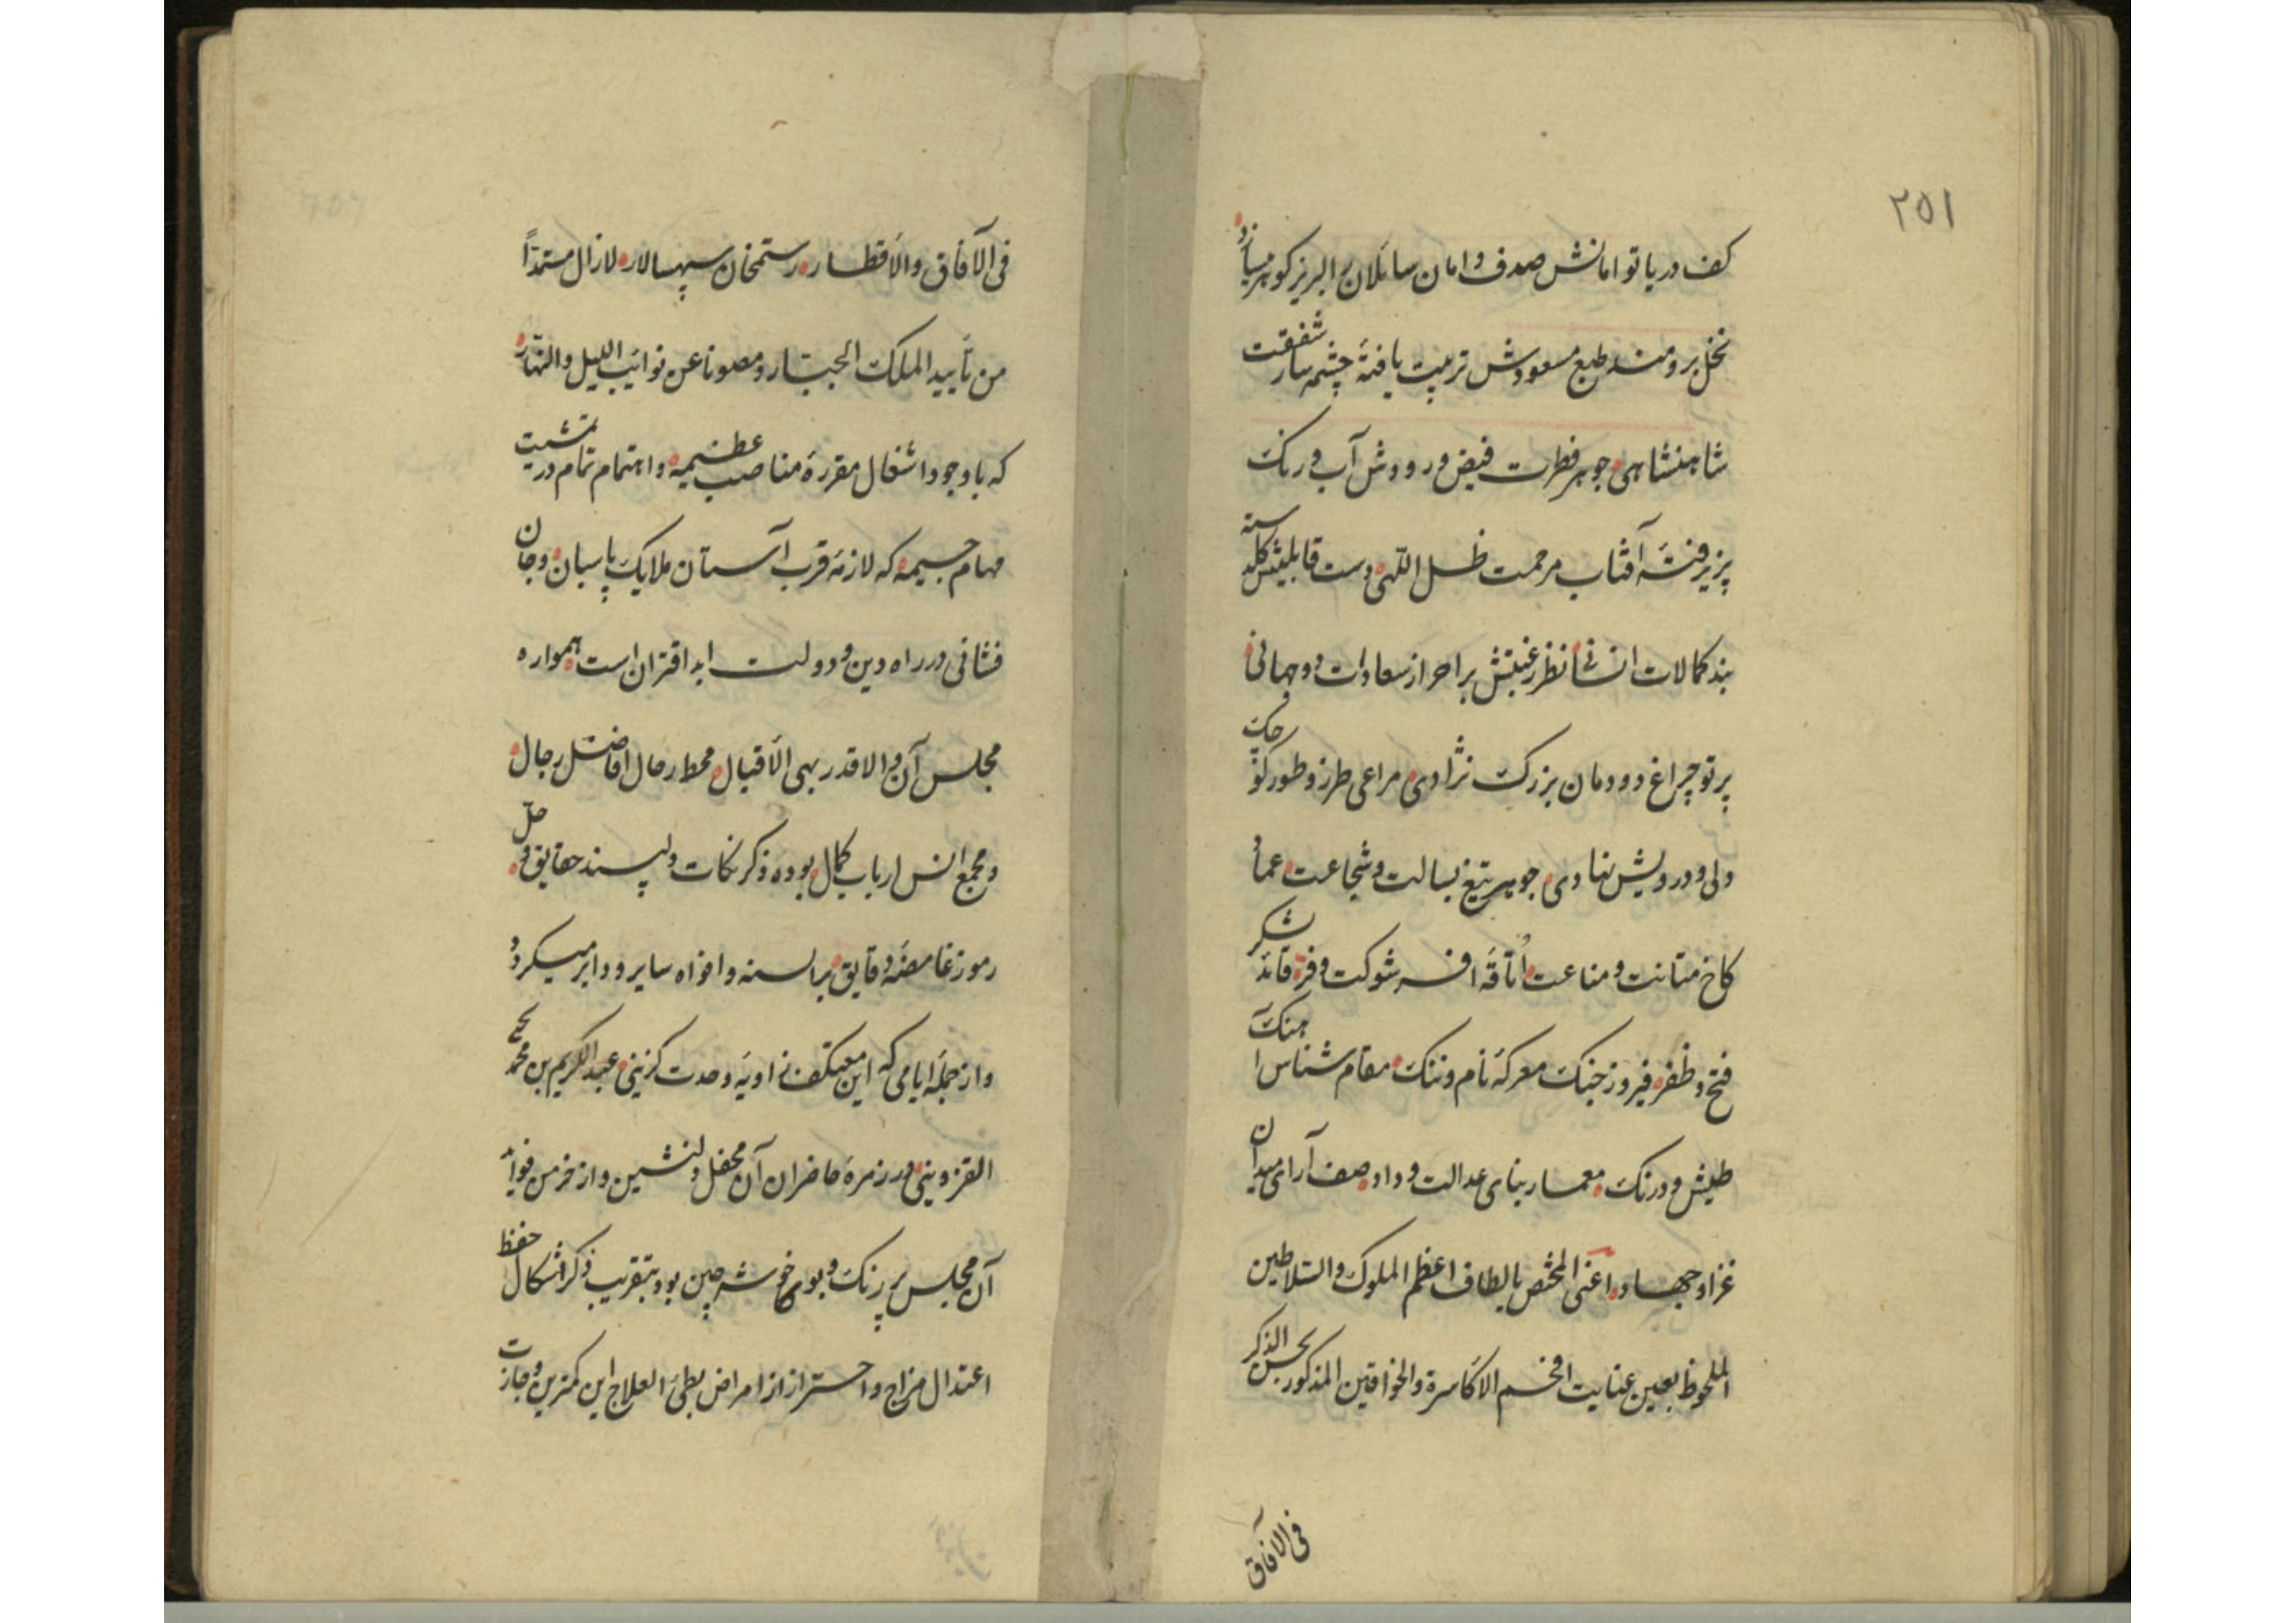 ۲۵۱
کف دریا توامانش صدف دامان سائلان را لبریز گوهر میسازد
نخل برومند طبع مسعودش تربیت یافتهٔ چشمه سار شفقت
شاهنشاهی جوهر فطرت فیض وردوش آب و رنگ
پزیرفتهٔ آفتاب مرحمت ظل اللهی دست قابلیتش گلدسته
بند کمالات انسانی نظر رغبتش بر احراز سعادات دوجهانی
پرتو چراغ دودمان بزرگ نژادی مراعی طرز و طور کوچک
ولی و درویش نهادی جوهر تیغ بسالت و شجاعت عماد
کاخ متانت و مناعت اُتاقهٔ افسر شوکت و فرّ قائد لشکر
فتح و ظفر فیروز جنگ معرکهٔ نام و ننگ مقام شناس اهنک
طیش و درنگ معمار بنای عدالت و داد صف آرای میدان
غزا و جهاد اعنی المختص بالطاف اعظم الملوک والسّلاطین
الملحوظ بعین عنایت افخم الاکاسرة والخواقین المذکور بحسن الذکر
فی الآفاق
فی الآفاق والاقطار رستمخان سپهسالار لازال مستمدّاً
من تأیید الملک الجبّار ومصوناً عن نوائب اللیل والنّهار
که باوجود اشغال مقررهٔ مناصب عظیمه واهتمام تمام در تمشیت
مهام جسیمه که لازمهٔ قرب آستان ملایک پاسبان و جان
فشانی در راه دین و دولت ابد اقتران است همواره
مجلس آن والاقدر بهی الاقبال محط رحال افاضل رجال
و مجمع انس ارباب کمال بوده ذکر نکات دلپسند حقایق و حلّ
رموز غامضهٔ دقایق بر السنه و افواه سایر و دایر میگردد
و از جملهٔ ایامی که این معتکف زاویهٔ وحدت گزینی عبدالکریم بن محمد یحیی
القزوینی در زمرهٔ حاضران آن محفل دلنشین و از خرمن فواید
آن مجلس پر رنگ و بوی خوشه چین بود بتقریب ذکر اشکال حفظ
اعتدال مزاج و احتراز از امراض بطئ العلاج این کمترین وجازت